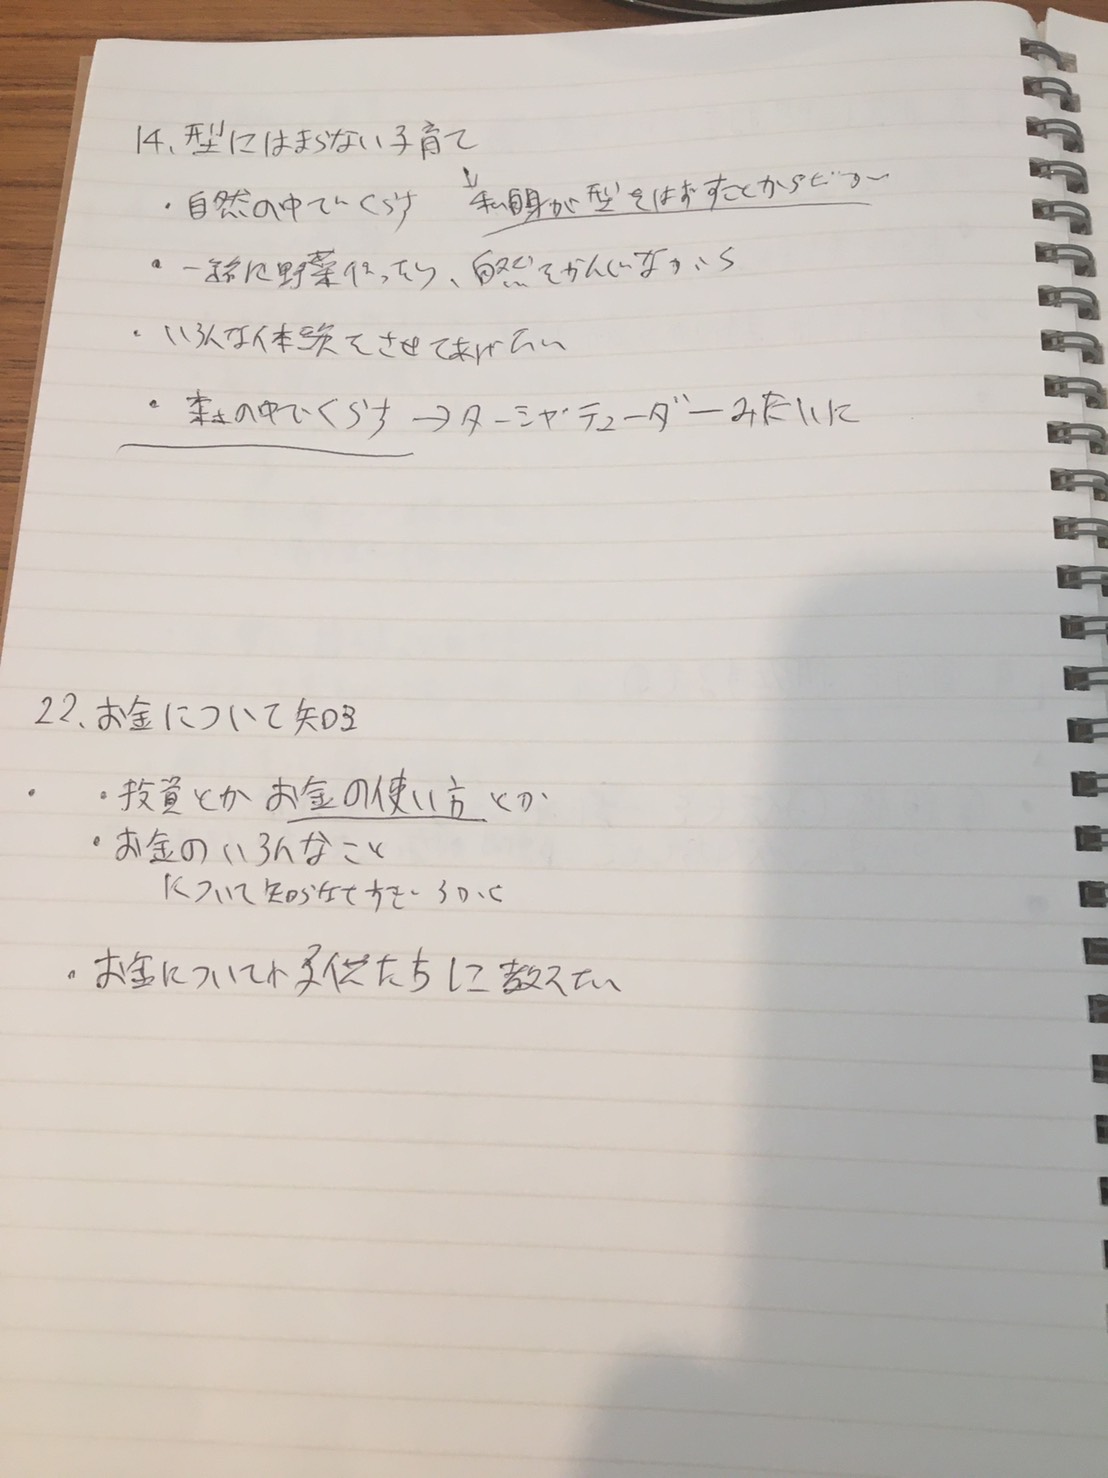 14、型にはまらない子育て
・自然の中でくらす ↓私自身が型をはずすことからだなー
・一緒に野菜作ったり、自然をかんじながら
・いろんな体験をさせてあげたい
・森の中でくらす→ターシャテューダーみたいに
22、お金について知る
・・投資とかお金の使い方とか
・お金のいろんなこと
について知らなすぎ
・お金について子供たちに教えたい